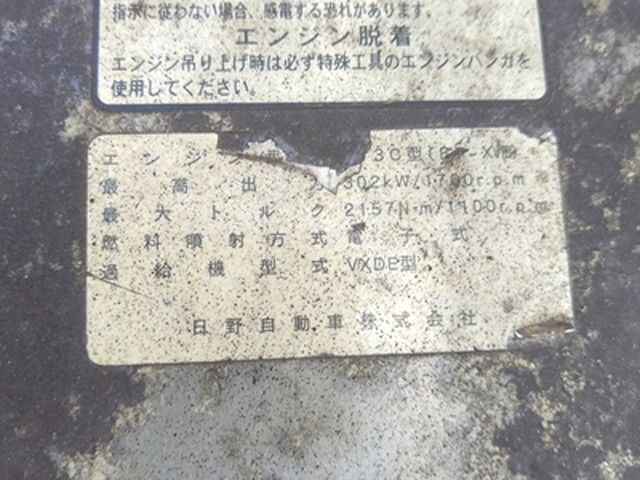 指示に従わない場合、感電する恐れがあります。
エンジン脱着
エンジン吊り上げ時は必ず特殊工具のエンジンハンガを
使用してください。
エンジン 3C型
最高出力 302kW/1700r.p.m
最大トルク 2157N·m/1100r.p.m
燃料噴射方式 電子式
過給機型式 VXDE型
日野自動車株式会社